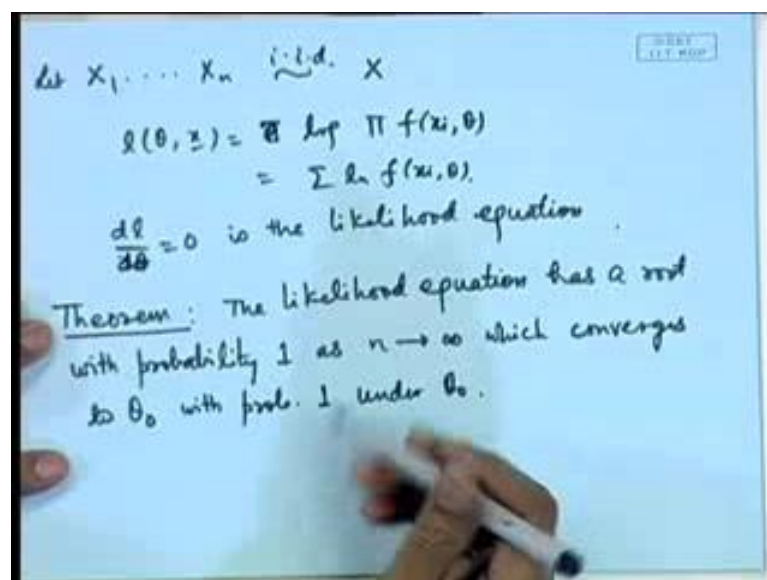 Let X₁ .... Xₙ i.i.d. ~ X
l(θ, x) = log Π f(xi, θ)
= Σ ln f(xi, θ).
dl/dθ = 0 is the likelihood equation.
Theorem : The likelihood equation has a root
with probability 1 as n → ∞ which converges
to θ₀ with prob. 1 under θ₀.
I.I.T. KGP